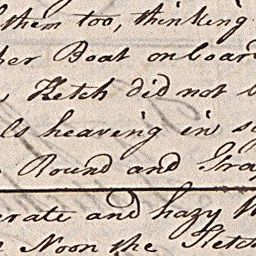 them too, thinking
her Boat onboar
Ketch did not
ls heaving in s
Round and Gra
erate and hazy W
Noon the Ketch